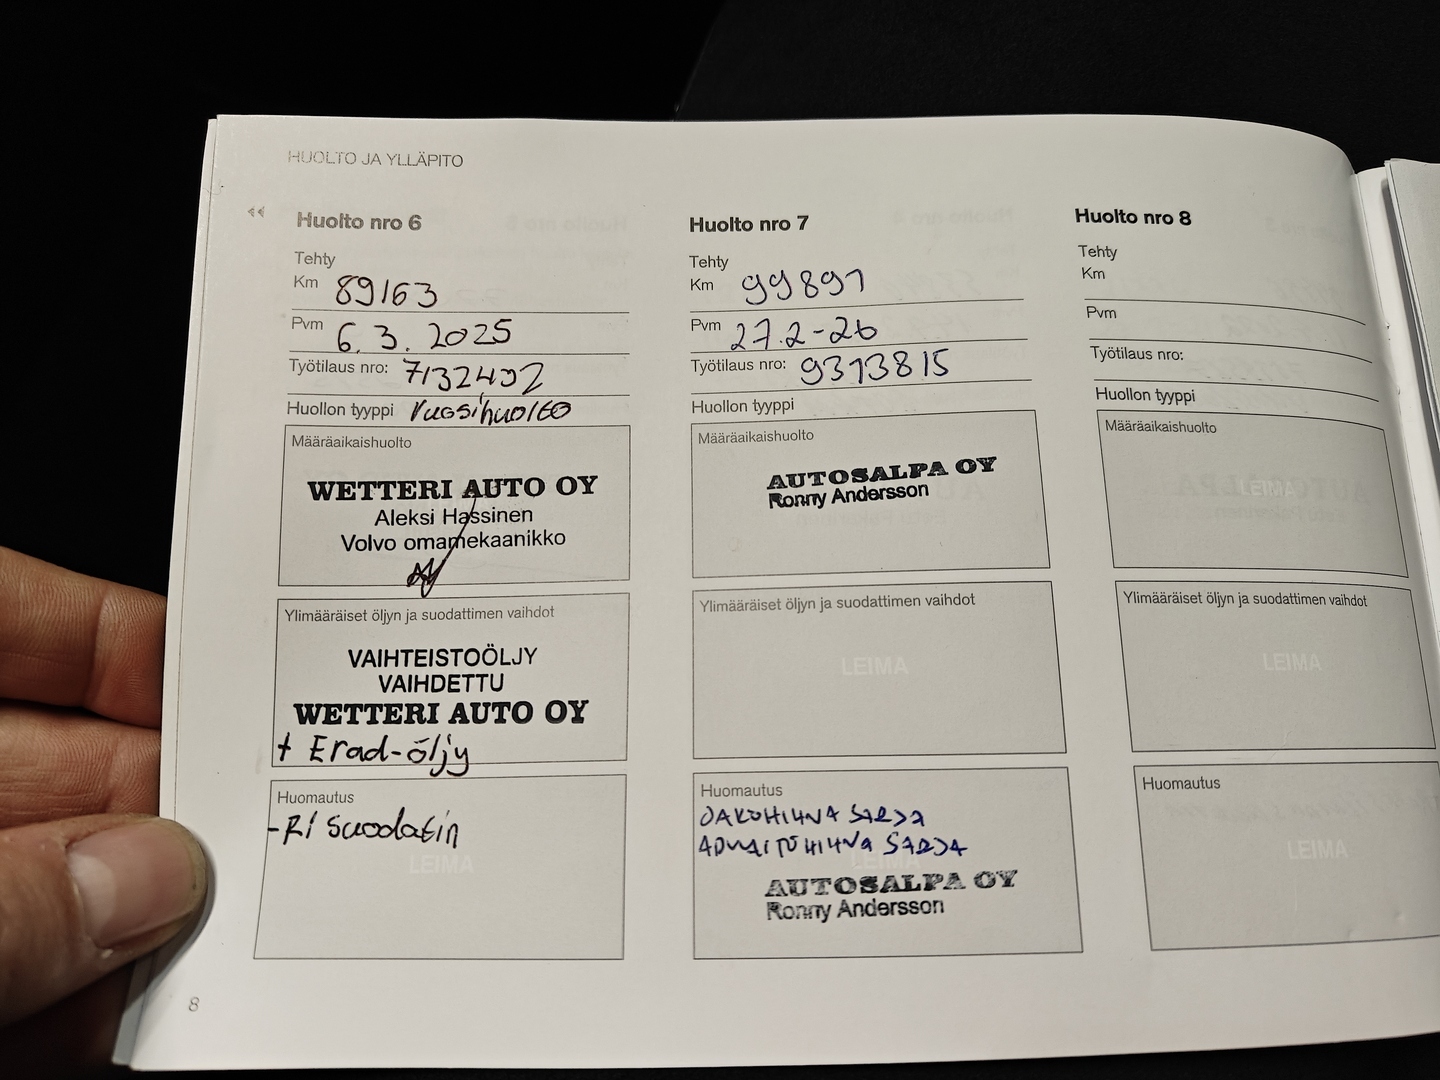 HUOLTO JA YLLÄPITO
Huolto nro 6
Tehty
Km 89163
Pvm 6.3.2025
Työtilaus nro: 7132492
Huollon tyyppi Vuosihuolto
Määräaikaishuolto
WETTERI AUTO OY
Aleksi Hassinen
Volvo omamekaanikko
Ylimääräiset öljyn ja suodattimen vaihdot
VAIHTEISTOÖLJY
VAIHDETTU
WETTERI AUTO OY
+ Erad-öljy
Huomautus
-RI suodatin
LEIMA
Huolto nro 7
Tehty
Km 99891
Pvm 27.2-26
Työtilaus nro: 9313815
Huollon tyyppi
Määräaikaishuolto
AUTOSALPA OY
Ronny Andersson
Ylimääräiset öljyn ja suodattimen vaihdot
LEIMA
Huomautus
JAKOHIHNA SARJA
APULAITEHIHNA SARJA
LEIMA
AUTOSALPA OY
Ronny Andersson
Huolto nro 8
Tehty
Km
Pvm
Työtilaus nro:
Huollon tyyppi
Määräaikaishuolto
LEIMA
Ylimääräiset öljyn ja suodattimen vaihdot
LEIMA
Huomautus
LEIMA
8